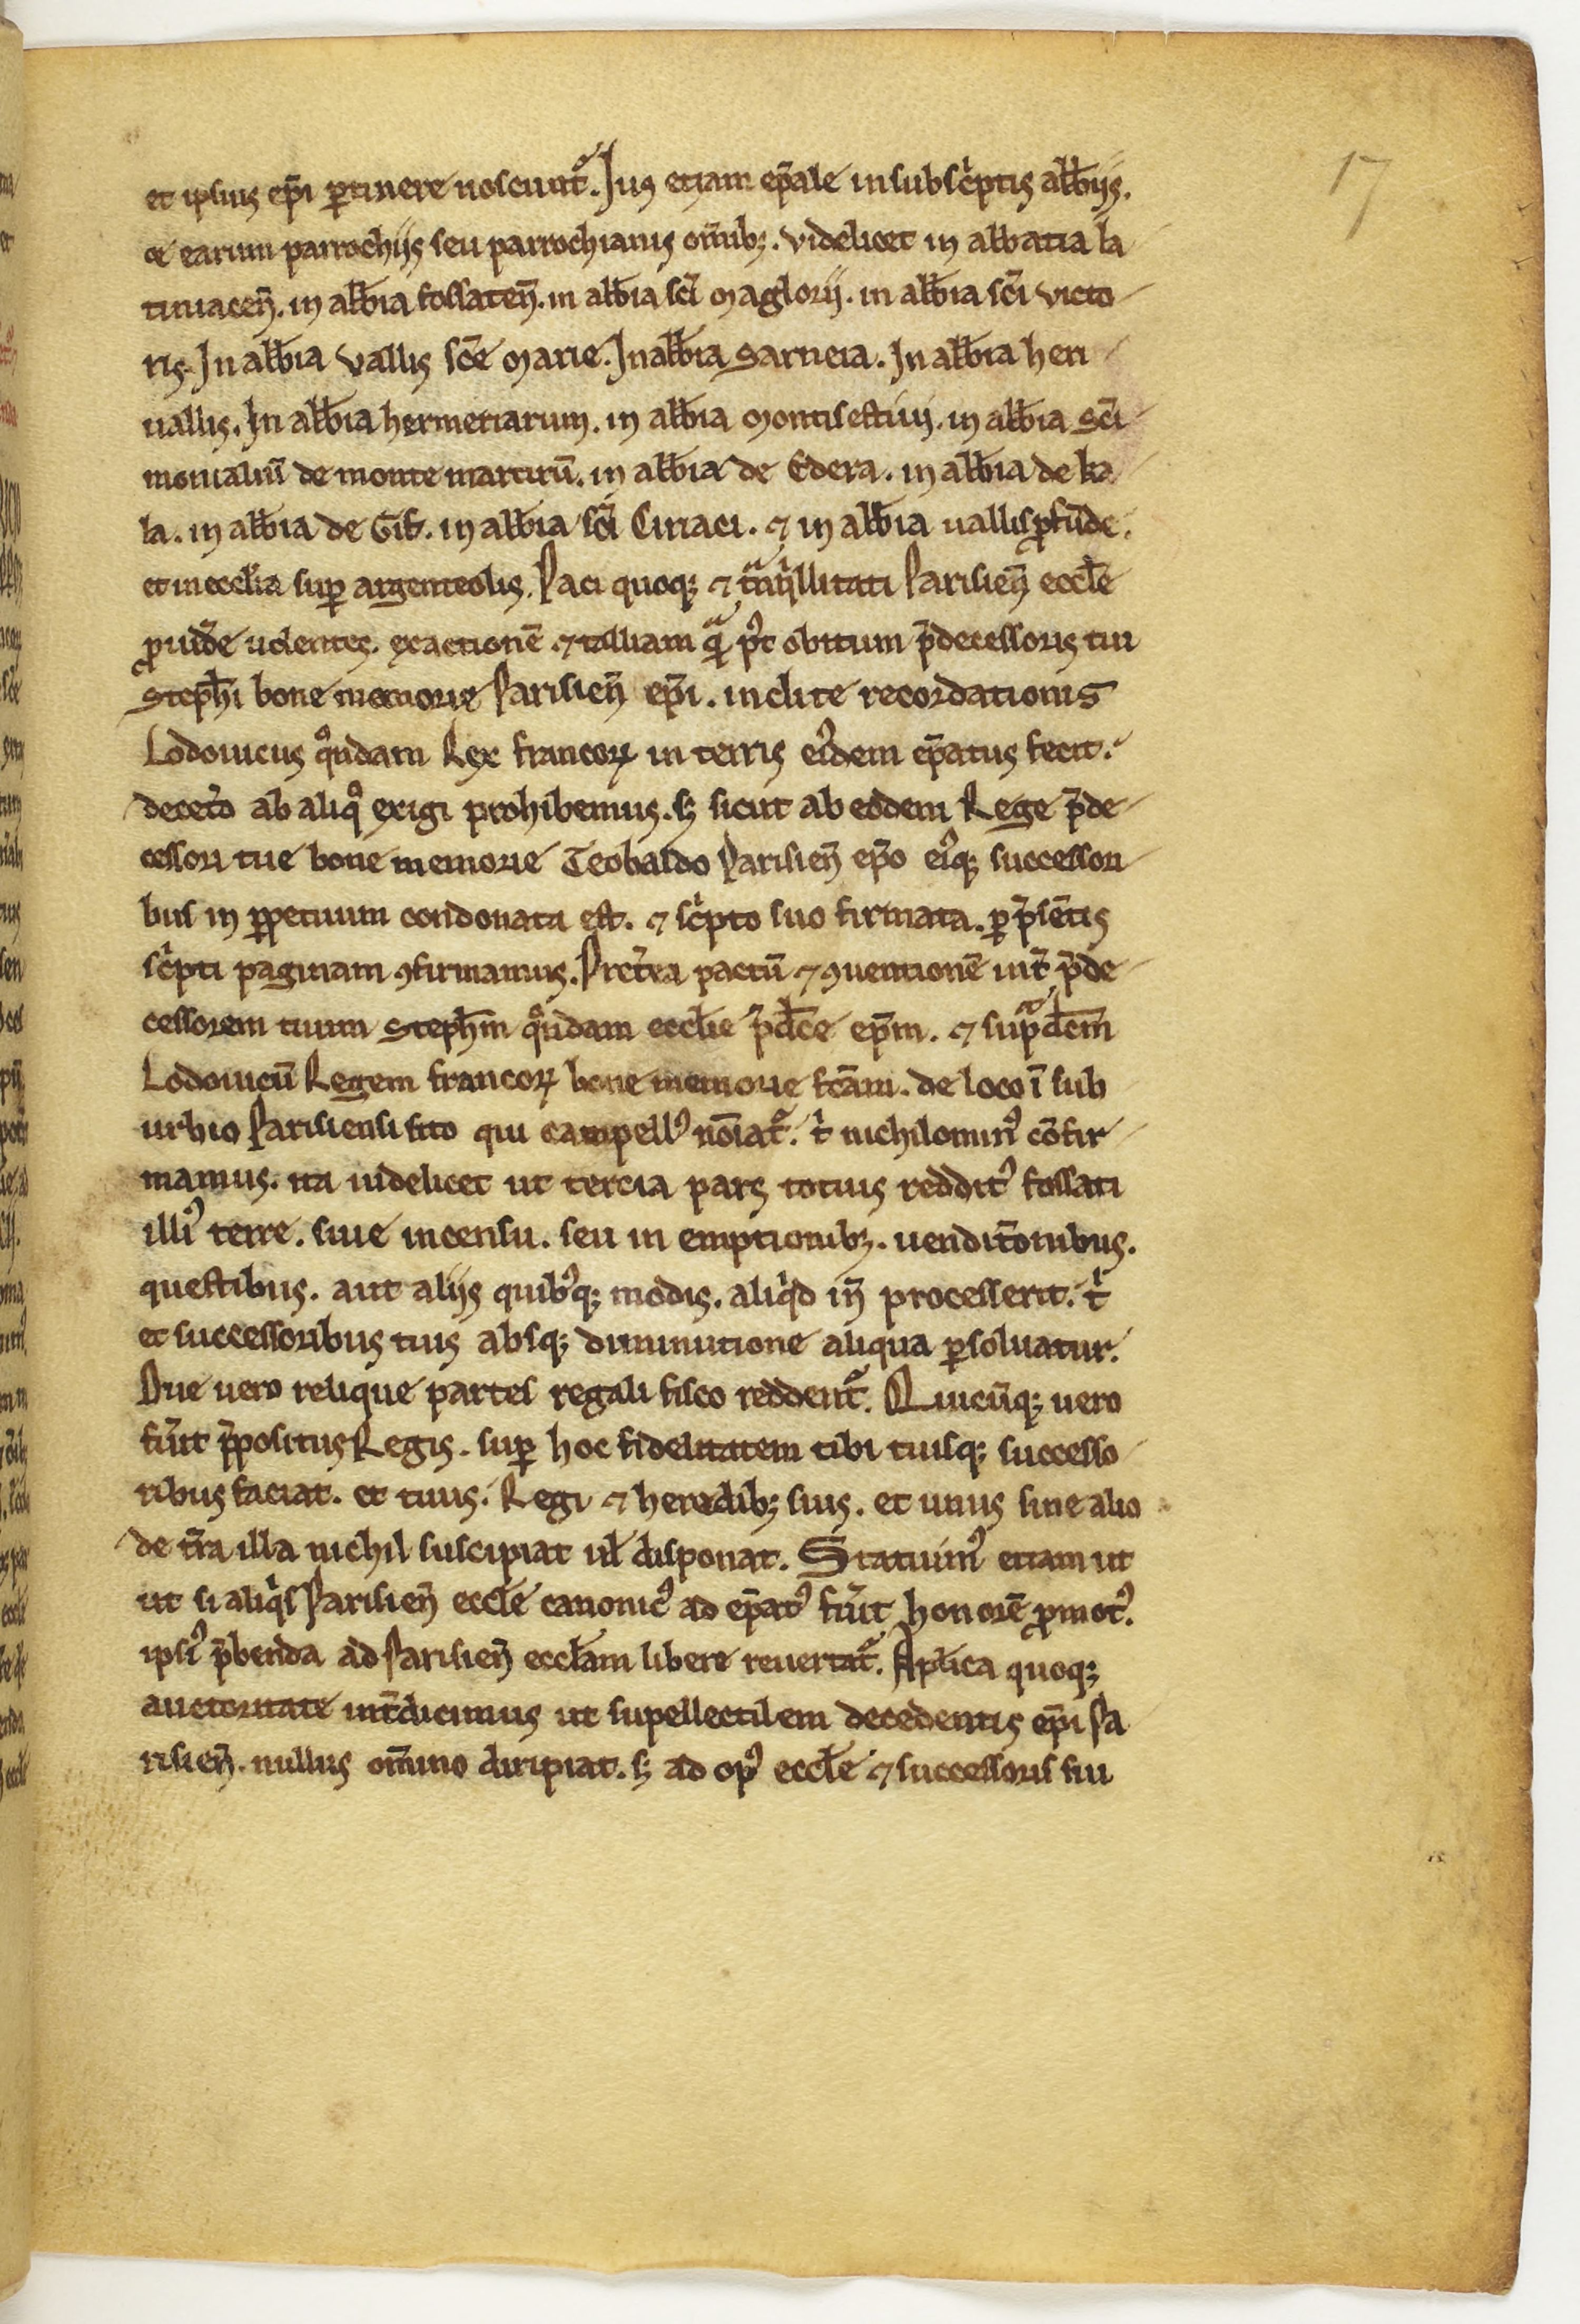 17
et ipsius ep̄i ꝑtinere noscunt᷑. Jus etiam ep̄ale in subscͥptis abb̄ijs.
⁊ earum parrochijs seu parrochianis om̄ibꝫ. videlicet in abbatia la
tiniacen̄. in abb̄ia fossaten̄. in abb̄ia scī Maglorij. in abb̄ia scī victo
ris. Jn abb̄ia vallis sc̄e Marie. Jn abb̄ia Sarneia. Jn abb̄ia heri
uallis. Jn abb̄ia hermeriarum. in abb̄ia Montisestiui. in abb̄ia Scī
monialiū de monte martirū. in abb̄ia de Edera. in abb̄ia de ka
la. in abb̄ia de Gif. in abb̄ia scī Ciriaci. ⁊ in abb̄ia uallis ꝓfūde.
et in eccl̄ia suꝑ argenteolis. Paci quoqꝫ ⁊ tᷓnqͥllitati Parisien̄ eccl̄e
ꝓuidē uolentes. exactionē ⁊ talliam qᷓ pꝰt obitum p̄decessoris tui
Steph̄i bone memorie Parisien̄ ep̄i. inclite recordationis
Lodouicus qͦndam Rex francoꝝ in terris eiꝰdem ep̄atus fecit.
deceto ab aliqͦ exigi prohibemus. sꝫ sicut ab eodem Rege p̄de
cessori tue bone memorie Teobaldo Parisien̄ ep̄o eiꝰqꝫ successori
bus in ꝑpetuum condonata est. ⁊ scͥpto suo firmata. ꝑ p̄sētis
scͥpti paginam ꝯfirmamus. Pret̄ea pactū ⁊ ꝯuentionē int̄ p̄de
cessorem tuum Steph̄m qͦndam eccl̄ie p̄dc̄e ep̄m. ⁊ supᷓdc̄m
Lodouicū Regem francoꝝ bone memorie fc̄am. de loco ī sub
urbio Parisiensi sito qui campellꝰ noīat᷑. tͥ nichilominꝰ cōfir
mamus. ita uidelicet ut tercia pars totius redditꝰ fossati
illiꝰ terre. siue in censu. seu in emptionibꝫ. uenditōnibus.
questibus. aut alijs quibꝰqꝫ modis. aliqͥd in̄ processerit. tͥ
et successoribus tuis absqꝫ diminutione aliqua ꝑsoluatur.
Due uero relique partes regali fisco reddent᷑. Quicūqꝫ uero
fu̅it p̄positus Regis. suꝑ hoc fidelitatem tibi tuisqꝫ successo
ribus faciat. et tuus. Regi ⁊ heredibꝫ suis. et unus sine alio
de t̄ra illa nichil suscipiat ul̄ disponat. Statuimꝰ etiam ut
ut si aliqͥs Parisien̄ eccl̄e canonicꝰ ad ep̄atꝰ fu̅it honorē ꝓmotꝰ.
ipsiꝰ p̄benda ad Parisien̄ eccl̄am libere reuertat᷑. Apl̄ica quoqꝫ
auctoritate int̄dicimus ut supellectilem decedentis ep̄i Pa
risien̄. nullus om̄ino diripiat. sꝫ ad opꝰ eccl̄e ⁊ successoris sui